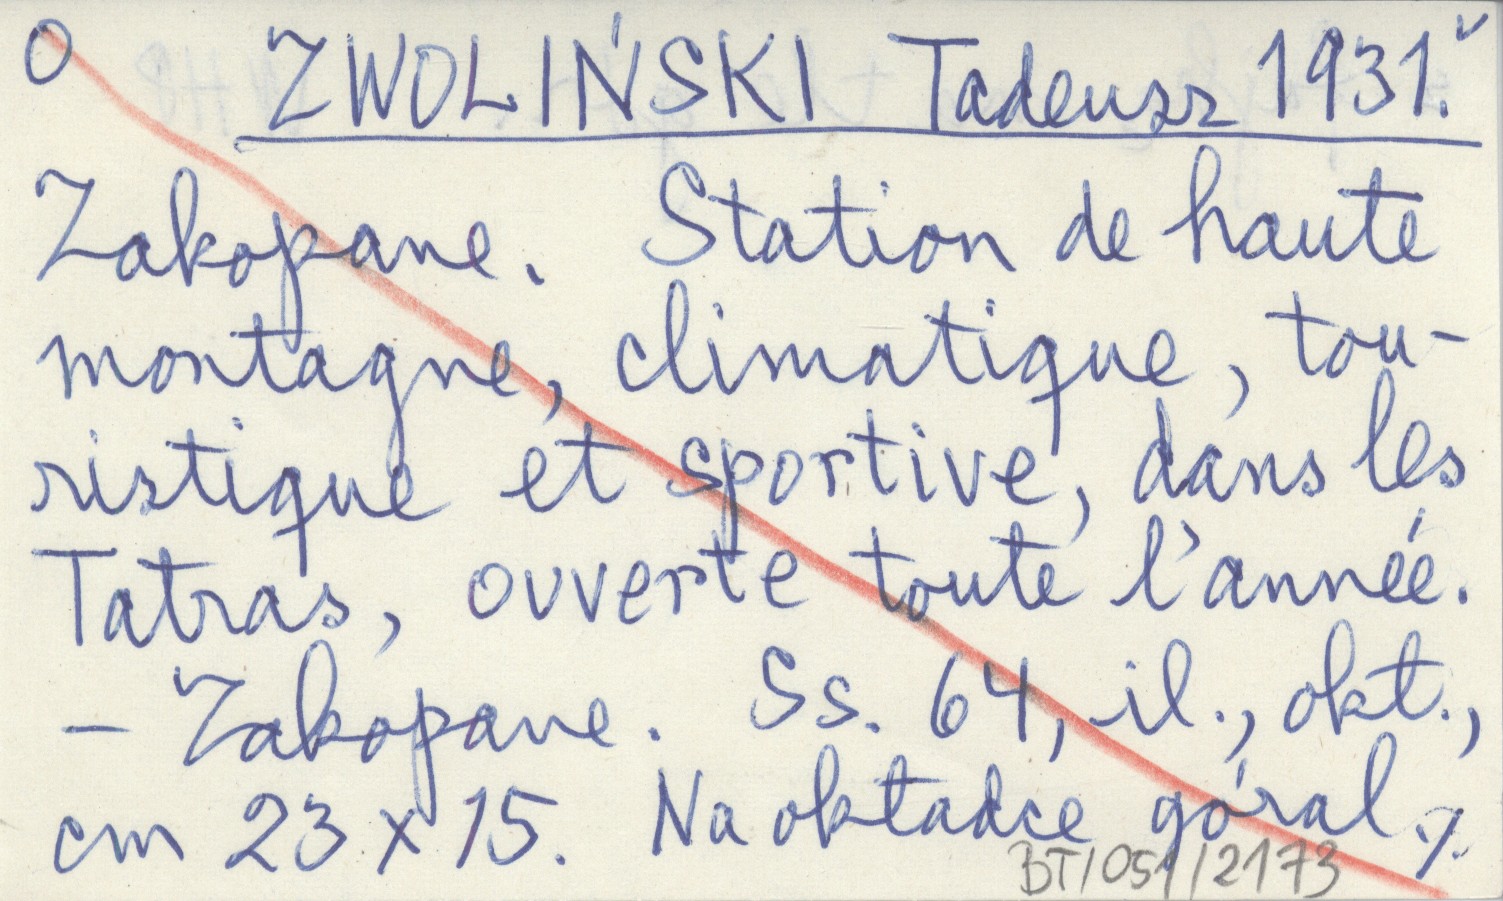 O ZWOLIŃSKI Tadeusz 1931.
Zakopane. Station de haute
montagne, climatique, tou-
ristique et sportive, dans les
Tatras, ouverte toute l'année.
- Zakopane. Ss. 64, il., okt.,
cm 23 x 15. Na okładce góral ./.
BT/051/2173